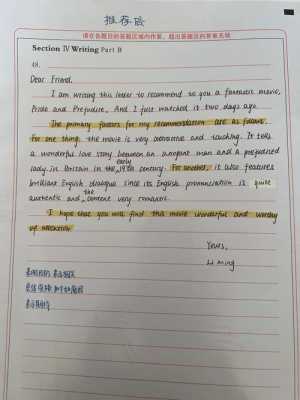 推荐信
请在各题目的答题区域内作答，超出答题区的答案无效
Section IV Writing Part B
48.
Dear Friend,
I am writing this letter to recommend to you a fantastic movie,
Pride and Prejudice. And I just watched it two days ago.
The primary factors for my recommendation are as follows.
For one thing, the movie is very attractive and touching. It tells
a wonderful love story between an arrogant man and a prejudiced
lady in Britain in the early 19th century. For another, it also features
brilliant English dialogue since its English pronunciation is quite
authentic and the content very romantic.
I hope that you will find this movie wonderful and worthy
of attention.
Yours,
Li Ming